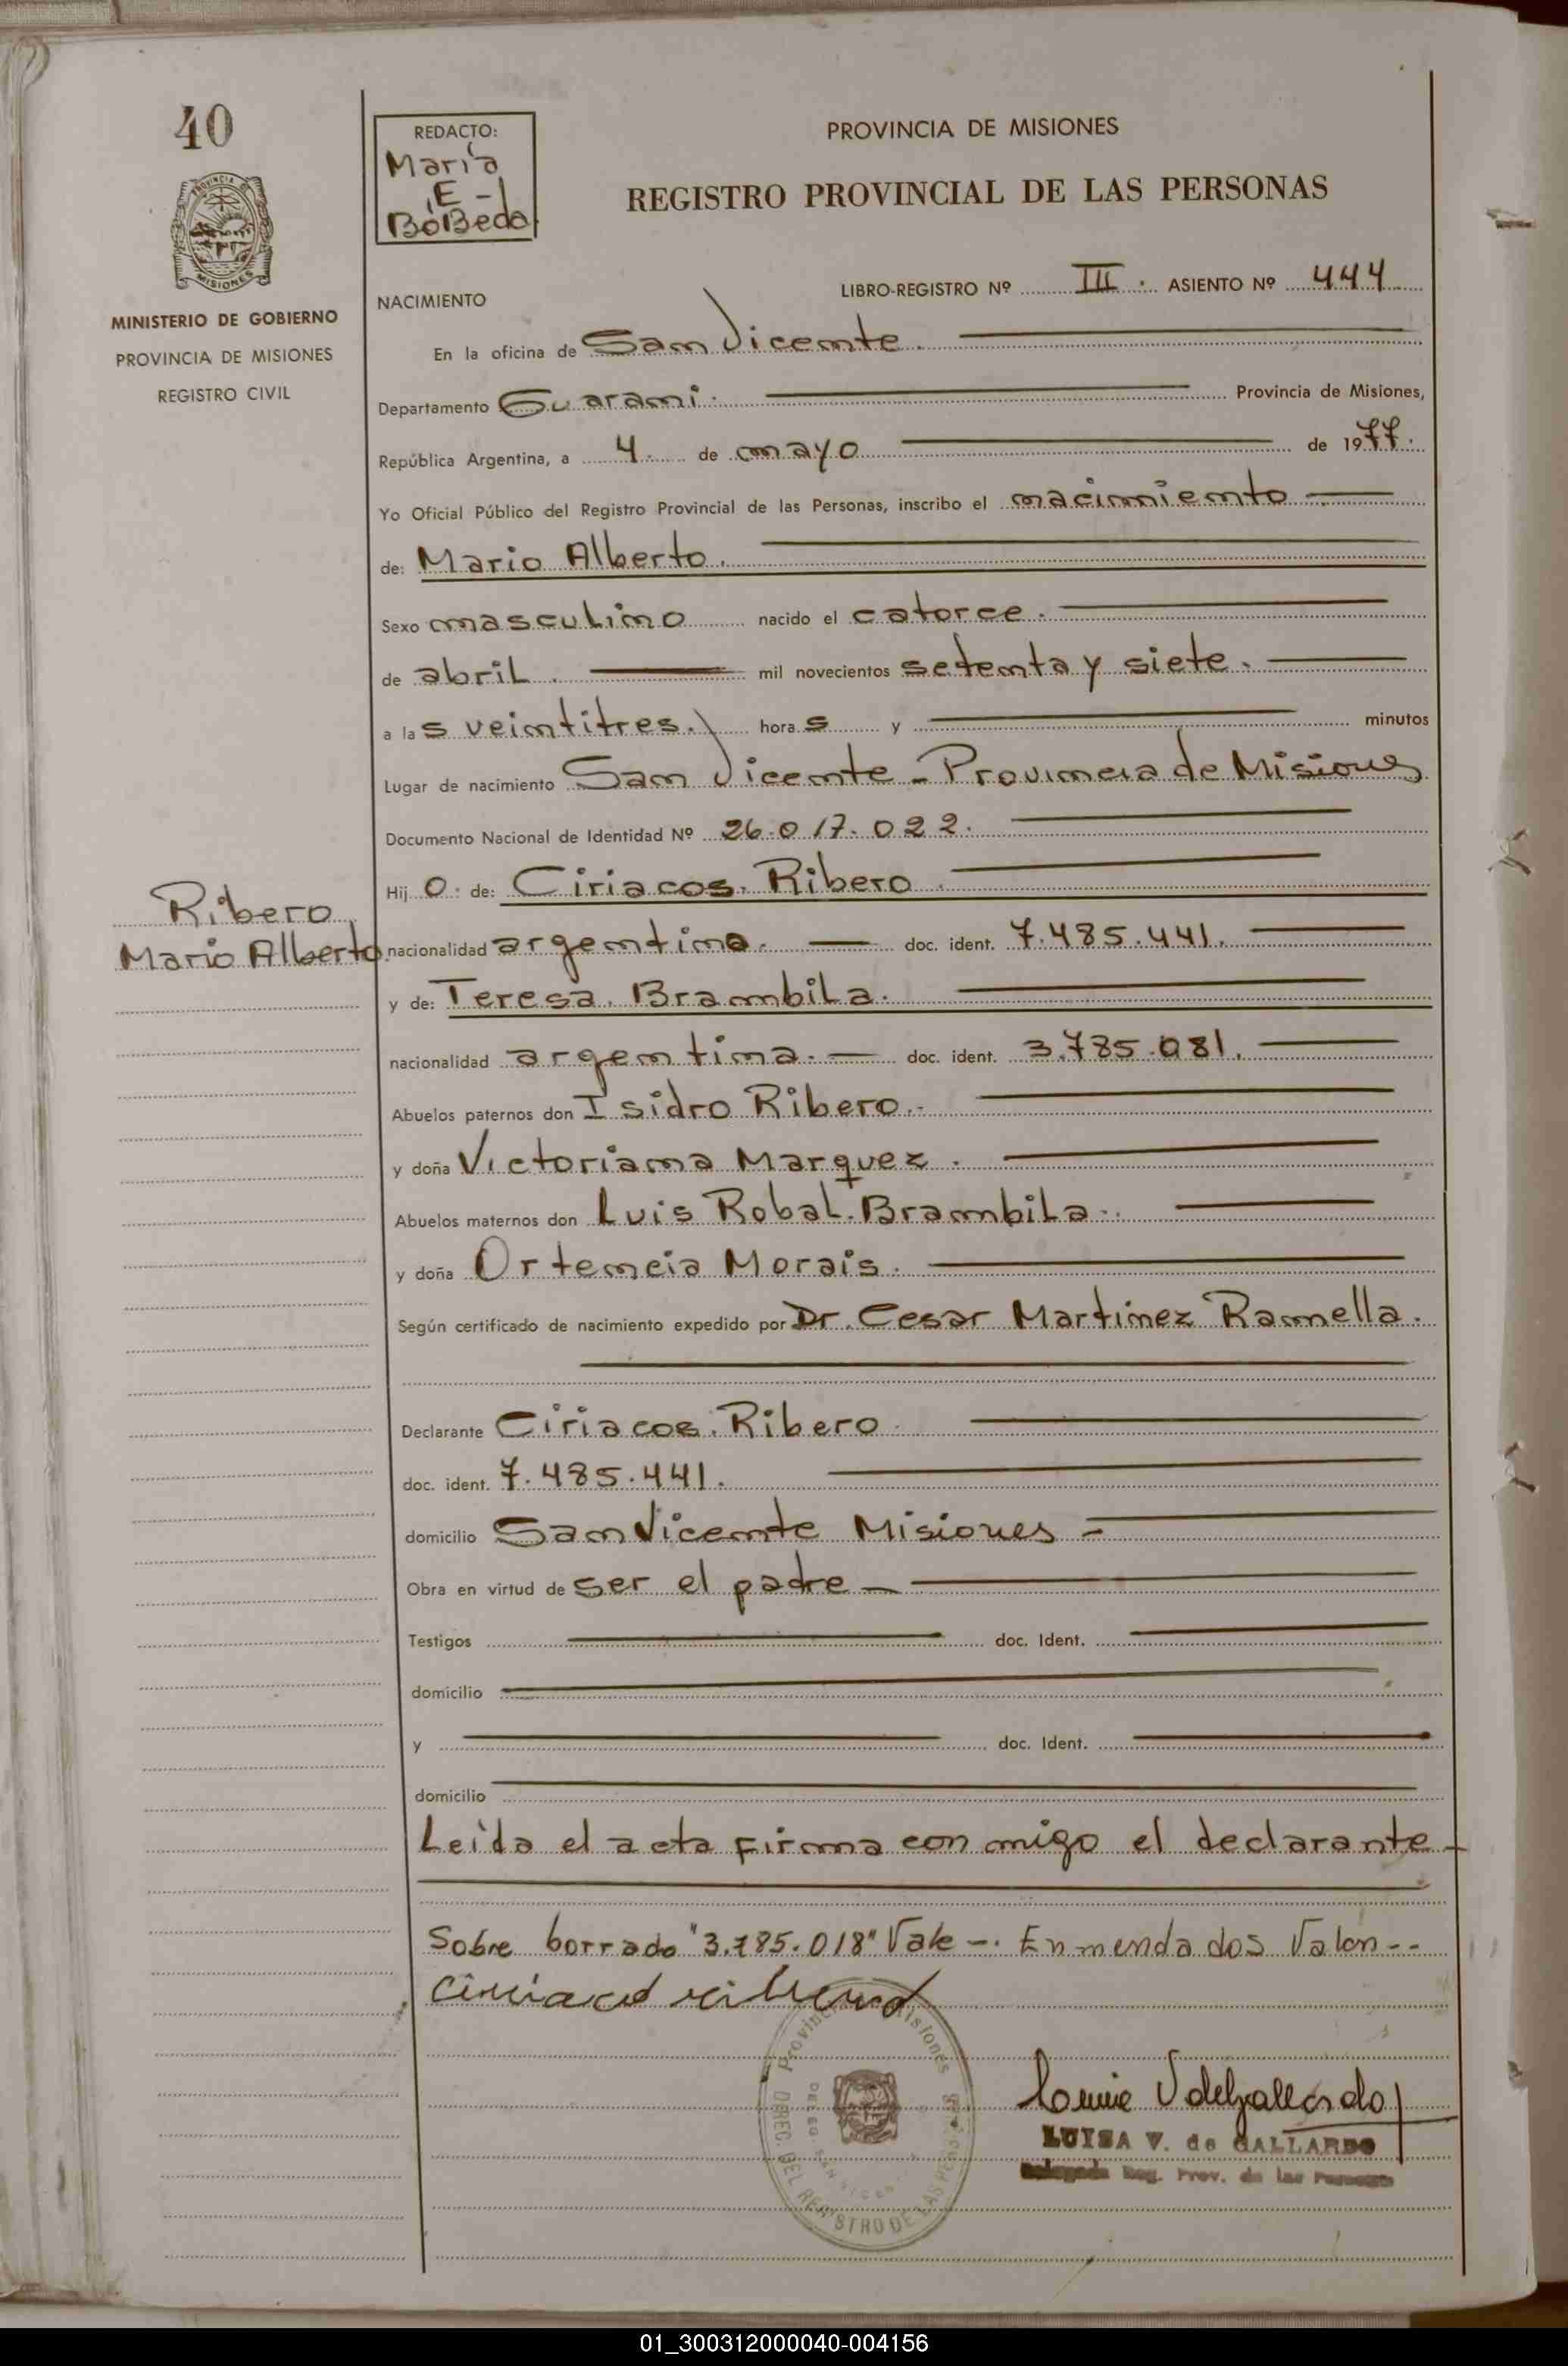 40
REDACTO:
María
E -
BoBeda
PROVINCIA DE MISIONES
REGISTRO PROVINCIAL DE LAS PERSONAS
MINISTERIO DE GOBIERNO
PROVINCIA DE MISIONES
REGISTRO CIVIL
LIBRO-REGISTRO Nº III. ASIENTO Nº 444
NACIMIENTO
En la oficina de San Vicente.
Departamento Guarani. Provincia de Misiones,
República Argentina, a 4. de mayo de 1977.
Yo Oficial Público del Registro Provincial de las Personas, inscribo el nacimiento
de: Mario Alberto.
Sexo masculino nacido el catorce.
de abril. mil novecientos setenta y siete.
a las veintitres. horas y minutos
Lugar de nacimiento San Vicente - Provincia de Misiones
Documento Nacional de Identidad Nº 26.017.022.
Hijo. de: Ciriacos. Ribero.
Ribero
Mario Alberto
nacionalidad argentino. doc. ident. 7.485.441.
y de: Teresa. Brambila.
nacionalidad argentina. doc. ident. 3.785.081.
Abuelos paternos don Isidro Ribero.
y doña Victoriana Marquez.
Abuelos maternos don Luis Robal. Brambila.
y doña Ortencia Morais.
Según certificado de nacimiento expedido por Dr. Cesar Martinez Ramella.
Declarante Ciriacos. Ribero
doc. ident. 7.485.441.
domicilio San Vicente Misiones -
Obra en virtud de ser el padre
Testigos doc. Ident.
domicilio
y doc. Ident.
domicilio
Leida el acta firma con migo el declarante -
Sobre borrado "3.785.018" Vale -. Enmendados Valen --
Ciriaco ribero
LUISA V. de GALLARDO
Delegada Reg. Prov. de las Personas
Provincia de Misiones
DIREC. DEL REGISTRO DE LAS PERSONAS
01_300312000040-004156